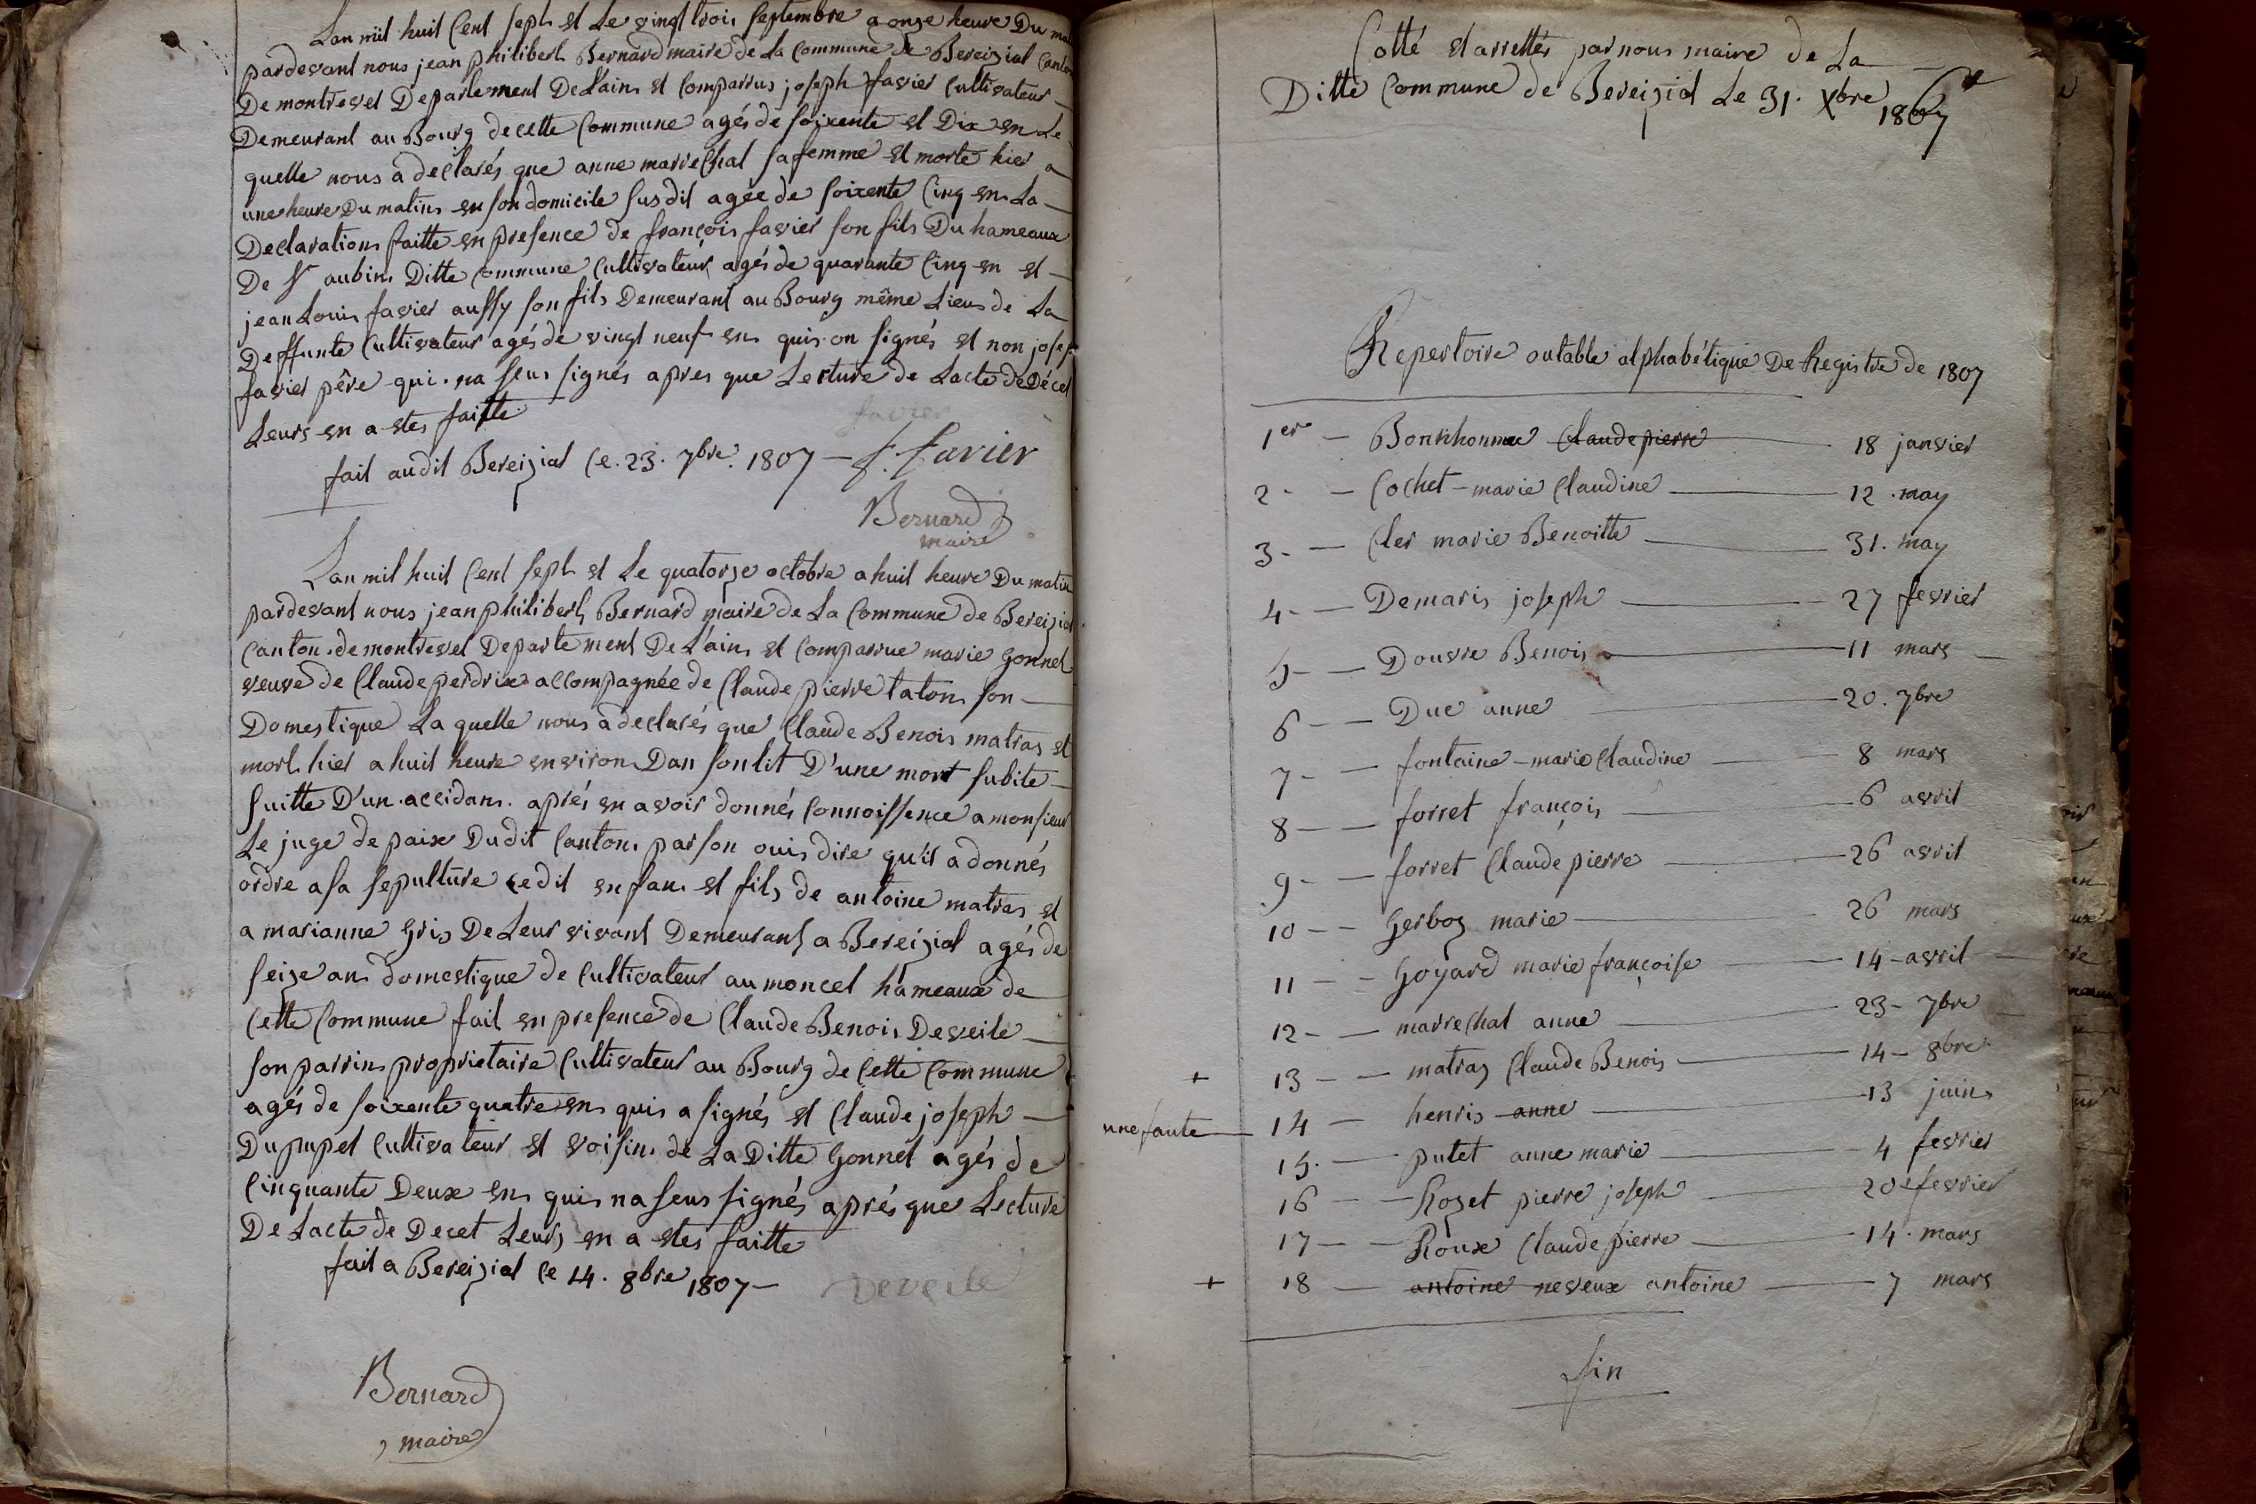 Lan mil huit Cent Sept et Le vingt trois Septembre a onze heure Du ma
pardevant nous jean philibert Bernard maire de La Commune de Bereiziat Canton
De montrevel Departement De L'ain et Comparrus joseph favier Cultivateur
Demeurant au Bourg de cette Commune agés de soixente et Dix en Le
quelle nous a declarés que anne marrechal sa femme et morte hier a
une heure Du matin en son domicile susdit agée de soixente Cinq en La
Declaration faitte en presence de françois favier son fils Du hameaux
De St aubin Ditte Commune Cultivateur agés de quarante Cinq en et
jean Louis favier aussy son fils Demeurant au Bourg même Lieu de La
Deffunte Cultivateur agés de vingt neuf en quis on signés et non josep
favier pêre qui na seu signés apres que Lecture de Lacte de Décet
Leurs en a etes faitte
favier
fait audit Bereiziat Ce 23. 7bre. 1807 — f. favier
Bernard
maire
Lan mil huit Cent Sept et Le quatorze octobre a huit heure Du matin
pardevant nous jean philibert Bernard maire de La Commune de Bereiziat
Canton de montrevel Departement De L'ain et Comparrue marie Gonnet
veuve de Claude perdrix accompagnée de Claude pierre taton son
Domestique La quelle nous a declarés que Claude Benois matras et
mort hier a huit heure environ Dan son lit D'une mort subite
suitte D'un accidans. aprés en avoir donnés Connoissence a monsieur
Le juge de paix Dudit Canton par son ouis dire qu'il a donnés
ordre a sa sepulture ledit enfan et fils de antoine matras et
a marianne Gris De Leur vivant Demeurant a Bereiziat agés de
seize ans domestique de Cultivateur au moncel hameaux de
Cette Commune fait en presence de Claude Benois Deveile
son parrin proprietaire Cultivateur au Bourg de Cette Commune
agés de soixente quatre en quis a signés et Claude joseph
Dupupet Cultivateur et voisin de La Ditte Gonnet agés de
Cinquante Deux en quis na seus signés aprés que Lecture
De Lacte de Decet Leurs en a etes faitte
fait a Bereiziat Ce 14. 8bre 1807 —
Deveile
Bernard
maire
Cotté et arrettés par nous maire de La
Ditte Commune de Bereiziat Le 31. Xbre 1807
Repertoire ou table alphabétique De Registre de 1807
1er — Bonhomme Claude pierre — 18 janvier
2 — Cochet marie Claudine — 12 may
3 — Cler marie Benoitte — 31. may
4 — Demaris joseph — 27 fevrier
5 — Douvre Benois — 11 mars
6 — Duc anne — 20. 7bre
7 — fontaine marie Claudine — 8 mars
8 — forret françois — 6 avril
9 — forret Claude pierre — 26 avril
10 — Gerboz marie — 26 mars
11 — Goyard marie françoise — 14 avril
12 — marrechal anne — 23 7bre
+ 13 — matras Claude Benois — 14 8bre
une faute 14 — henris anne — 13 juin
15. — putet anne marie — 4 fevrier
16 — Rozet pierre joseph — 20 fevrier
17 — Roux Claude pierre — 14. mars
+ 18 — antoine neveux antoine — 7 mars
fin